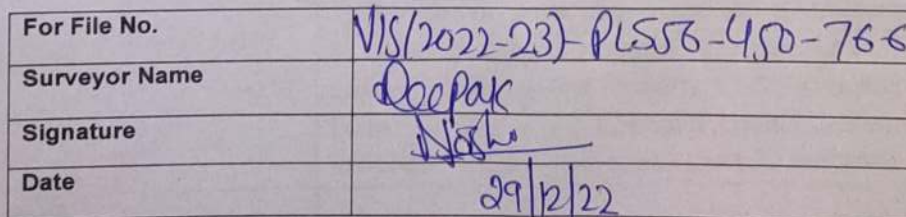 For File No. VIS(2022-23)-PL556-450-766
Surveyor Name Deepak
Signature
Date 29/12/22